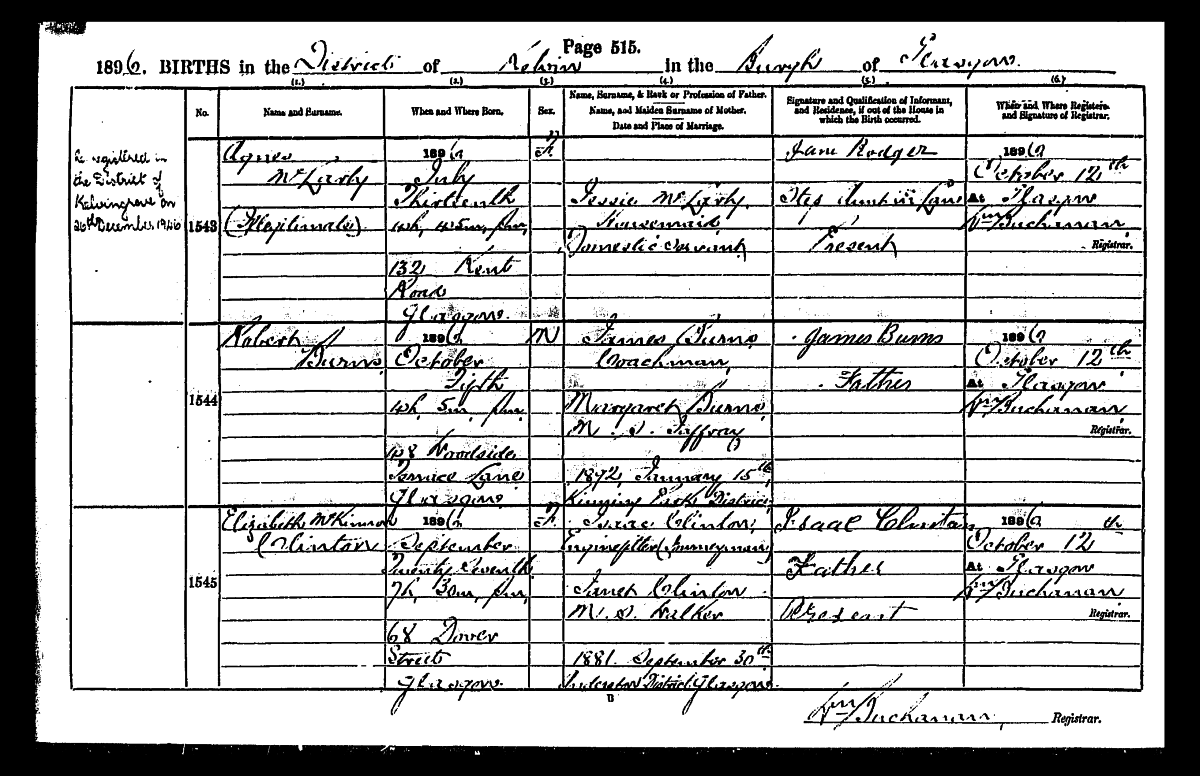 Page 515.
1896. BIRTHS in the District of Kelvin in the Burgh of Glasgow.
(1.) (2.) (3.) (4.) (5.) (6.)
No. Name and Surname. When and Where Born. Sex. Name, Surname, & Rank or Profession of Father. Name, and Maiden Surname of Mother. Date and Place of Marriage. Signature and Qualification of Informant, and Residence, if out of the House in which the Birth occurred. When and Where Registered and Signature of Registrar.
registered in
the District of
Kelvingrove on
26th December, 1946
1543
Agnes
McLarty
(Illegitimate)
1896
July
Thirteenth
4h. 45m. p.m.
132 Kent
Road
Glasgow.
F.
Jessie McLarty,
Housemaid
Domestic Servant
Jane Rodger
Present
1896
October 12th
At Glasgow
Wm Buchanan
Registrar.
1544
Robert
Burns
1896
October
Fifth
4h. 5m. p.m.
48 Woodside
Terrace Lane
Glasgow
M
James Burns
Coachman,
Margaret Burns,
M. S. Jaffray
1892, January 15th
Kinning Park District
James Burns
Father
1896
October 12th
At Glasgow
Wm Buchanan
Registrar.
1545
Elizabeth McKinnon
Clinton
1896
September
Twenty Seventh
7h. 30m. p.m.
68 Dover
Street
Glasgow
F.
Isaac Clinton,
Enginefitter (Journeyman)
Janet Clinton
M. S. Walker
1881. September 30th
Anderston District, Glasgow.
Isaac Clinton
Father
Present
1896
October 12th
At Glasgow
Wm Buchanan
Registrar.
B
Wm Buchanan, Registrar.